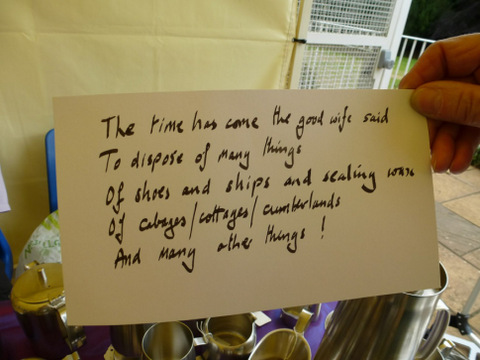 The time has come the good wife said
To dispose of many things
Of shoes and ships and sealing wax
Of cabages/cottages/cumberlands
And many other things!